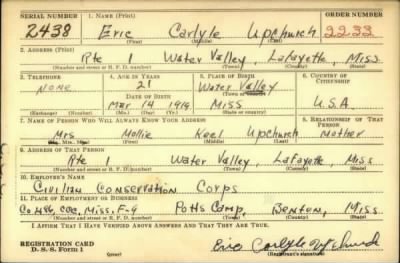 SERIAL NUMBER 1. NAME (Print) ORDER NUMBER
2438 Eric Carlyle Upchurch 2233
(First) (Middle) (Last)
2. ADDRESS (Print)
Rte 1 Water Valley, Lafayette, Miss.
(Number and street or R. F. D. number) (Town) (County) (State)
3. TELEPHONE 4. AGE IN YEARS 5. PLACE OF BIRTH 6. COUNTRY OF CITIZENSHIP
None 21 Water Valley
DATE OF BIRTH (Town or county)
Mar 14 1919 Miss U.S.A.
(Exchange) (Number) (Mo.) (Day) (Yr.) (State or country)
7. NAME OF PERSON WHO WILL ALWAYS KNOW YOUR ADDRESS 8. RELATIONSHIP OF THAT PERSON
Mrs Mollie Keel Upchurch Mother
(First) (Middle) (Last)
9. ADDRESS OF THAT PERSON
Rte 1 Water Valley, Lafayette, Miss
(Number and street or R. F. D. number) (Town) (County) (State)
10. EMPLOYER'S NAME
Civilian Conservation Corps
11. PLACE OF EMPLOYMENT OR BUSINESS
CCC, Miss. F-4 Potts Camp, Benton, Miss
(Number and street or R. F. D. number) (Town) (County) (State)
I AFFIRM THAT I HAVE VERIFIED ABOVE ANSWERS AND THAT THEY ARE TRUE.
REGISTRATION CARD
D. S. S. Form 1 (over) Eric Carlyle Upchurch
(Registrant's signature)